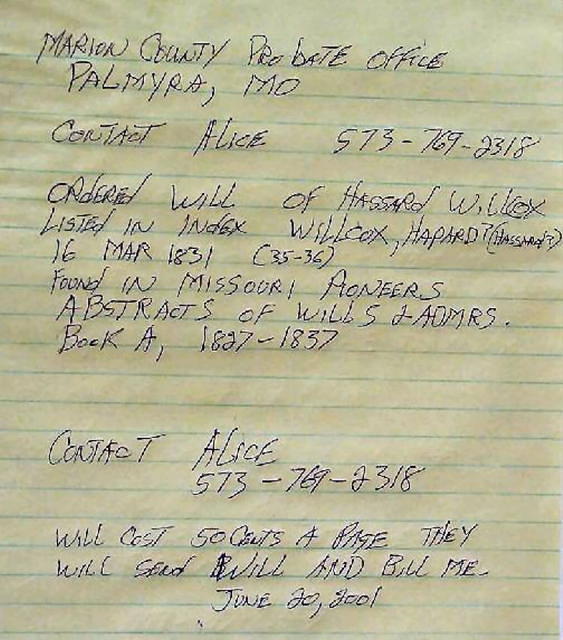 MARION COUNTY PROBATE OFFICE
PALMYRA, MO
CONTACT ALICE 573-769-2318
ORDERED WILL OF HASSARD WILLCOX
LISTED IN INDEX WILLCOX, HAPARD? (HASSARD?)
16 MAR 1831 (35-36)
FOUND IN MISSOURI PIONEERS
ABSTRACTS OF WILLS & ADMRS.
BOOK A, 1827-1837
CONTACT ALICE
573-769-2318
WILL COST 50 CENTS A PAGE THEY
WILL SEND WILL AND BILL ME.
JUNE 20, 2001